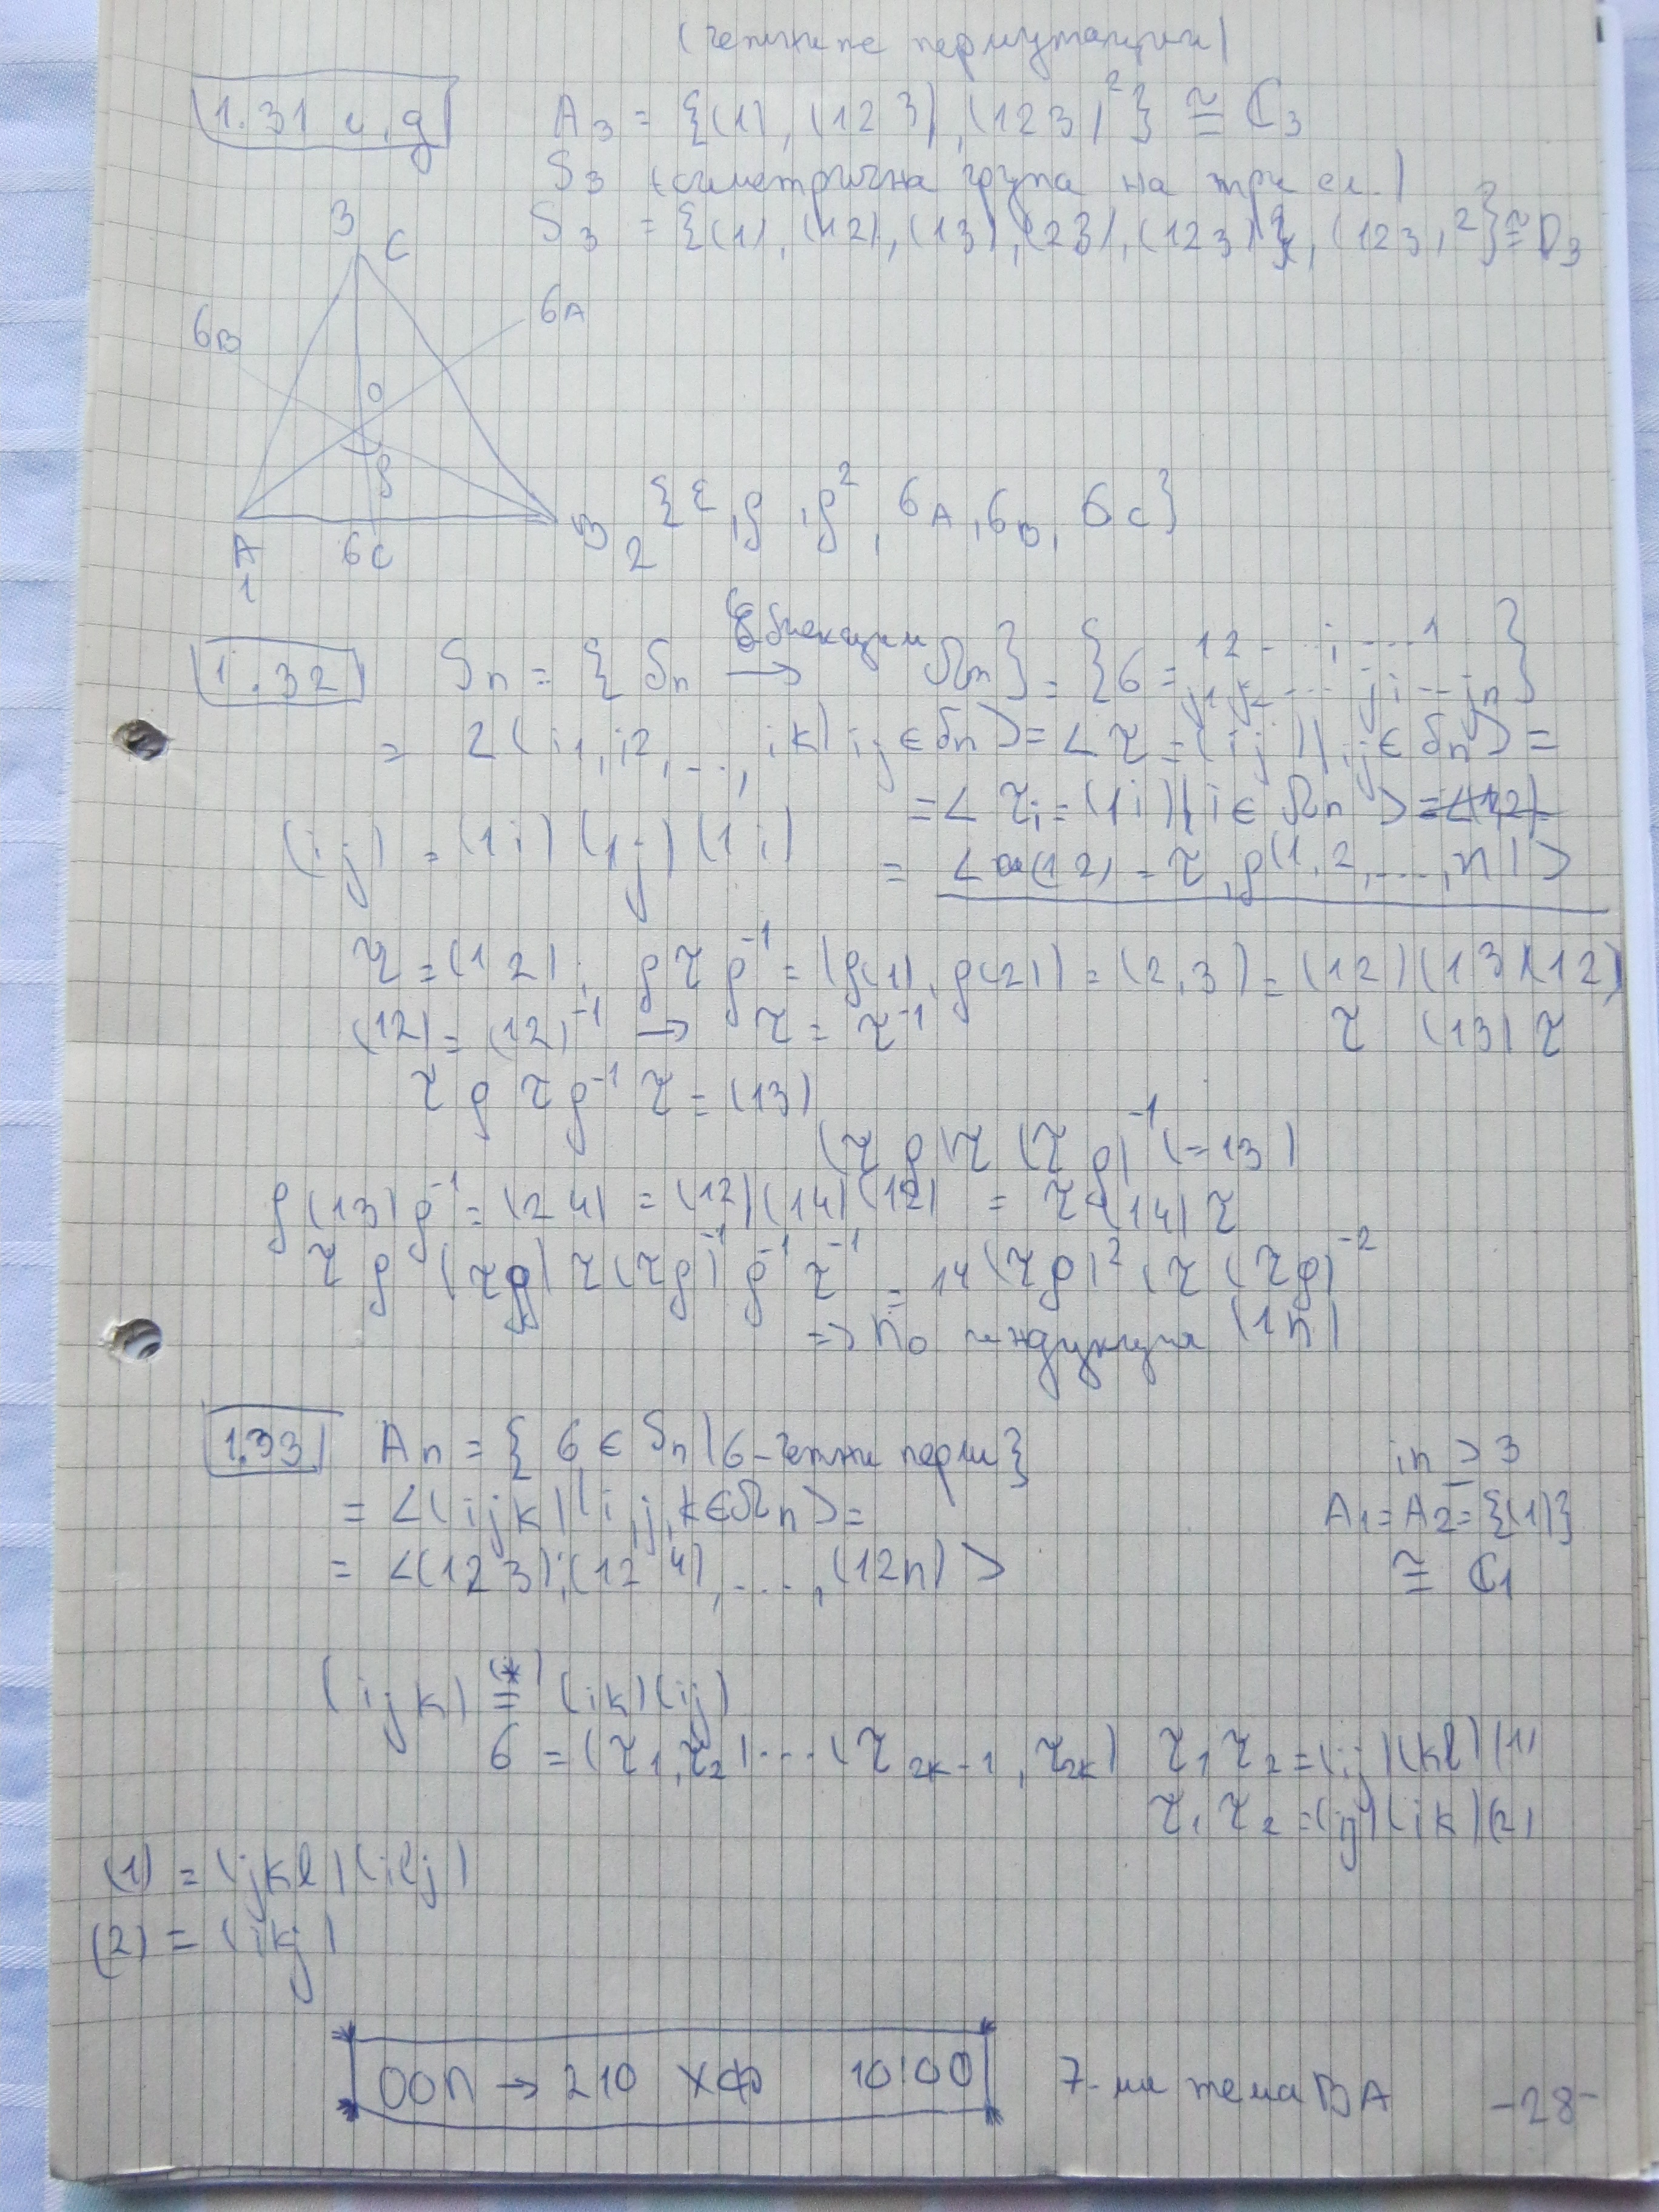 (четните пермутации)
1.31 c,g
A3 = {(1), (123), (123)²} ≅ C3
S3 (симетрична група на три ел.)
S3 = {(1), (12), (13), (23), (123), (123)²} ≅ D3
3 C
бB
бA
O
ρ
A бC B 2
1
{ε, ρ, ρ², бA, бB, бC}
1.32 Sn = { Ωn → биекции Ωn } = { б = 12...i...n
j1j2...ji...jn }
= <(i1, i2, ..., ik) ij ∈ Ωn> = <τ = (ij) | i,j ∈ Ωn> =
= <τi = (1i) | i ∈ Ωn> = <(12)
(ij) = (1i)(1j)(1i)
= <(12) = τ, ρ(1,2,...,n)>
τ = (12), ρτρ⁻¹ = (ρ(1), ρ(2)) = (2,3) = (12)(13)(12)
(12) = (12)⁻¹ → τ = τ⁻¹ τ (13) τ
τρτρ⁻¹τ = (13)
(τρ)τ(τρ)⁻¹(=13)
ρ(13)ρ⁻¹ = (24) = (12)(14)(12) = τ(14)τ
τρ(τρ)τ(τρ)⁻¹ρ⁻¹τ⁻¹ = 14(τρ)²(τ(τρ)⁻²
=> по индукция (1n)
1.33 An = { б ∈ Sn | б - четни перм }
in ≥ 3
= <(ijk) | i,j,k ∈ Ωn> =
A1 = A2 = {(1)}
= <(123), (124), ..., (12n)>
≅ C1
(ijk) (*) = (ik)(ij)
б = (τ1,τ2)...(τ2k-1, τ2k) τ1τ2 = (ij)(kl)(1)
τ1τ2 = (ij)(ik)(2)
(1) = (jkl)(ilj)
(2) = (ikj)
ООП → 210 ХФ 10:00
7-ма тема ВА
-28-